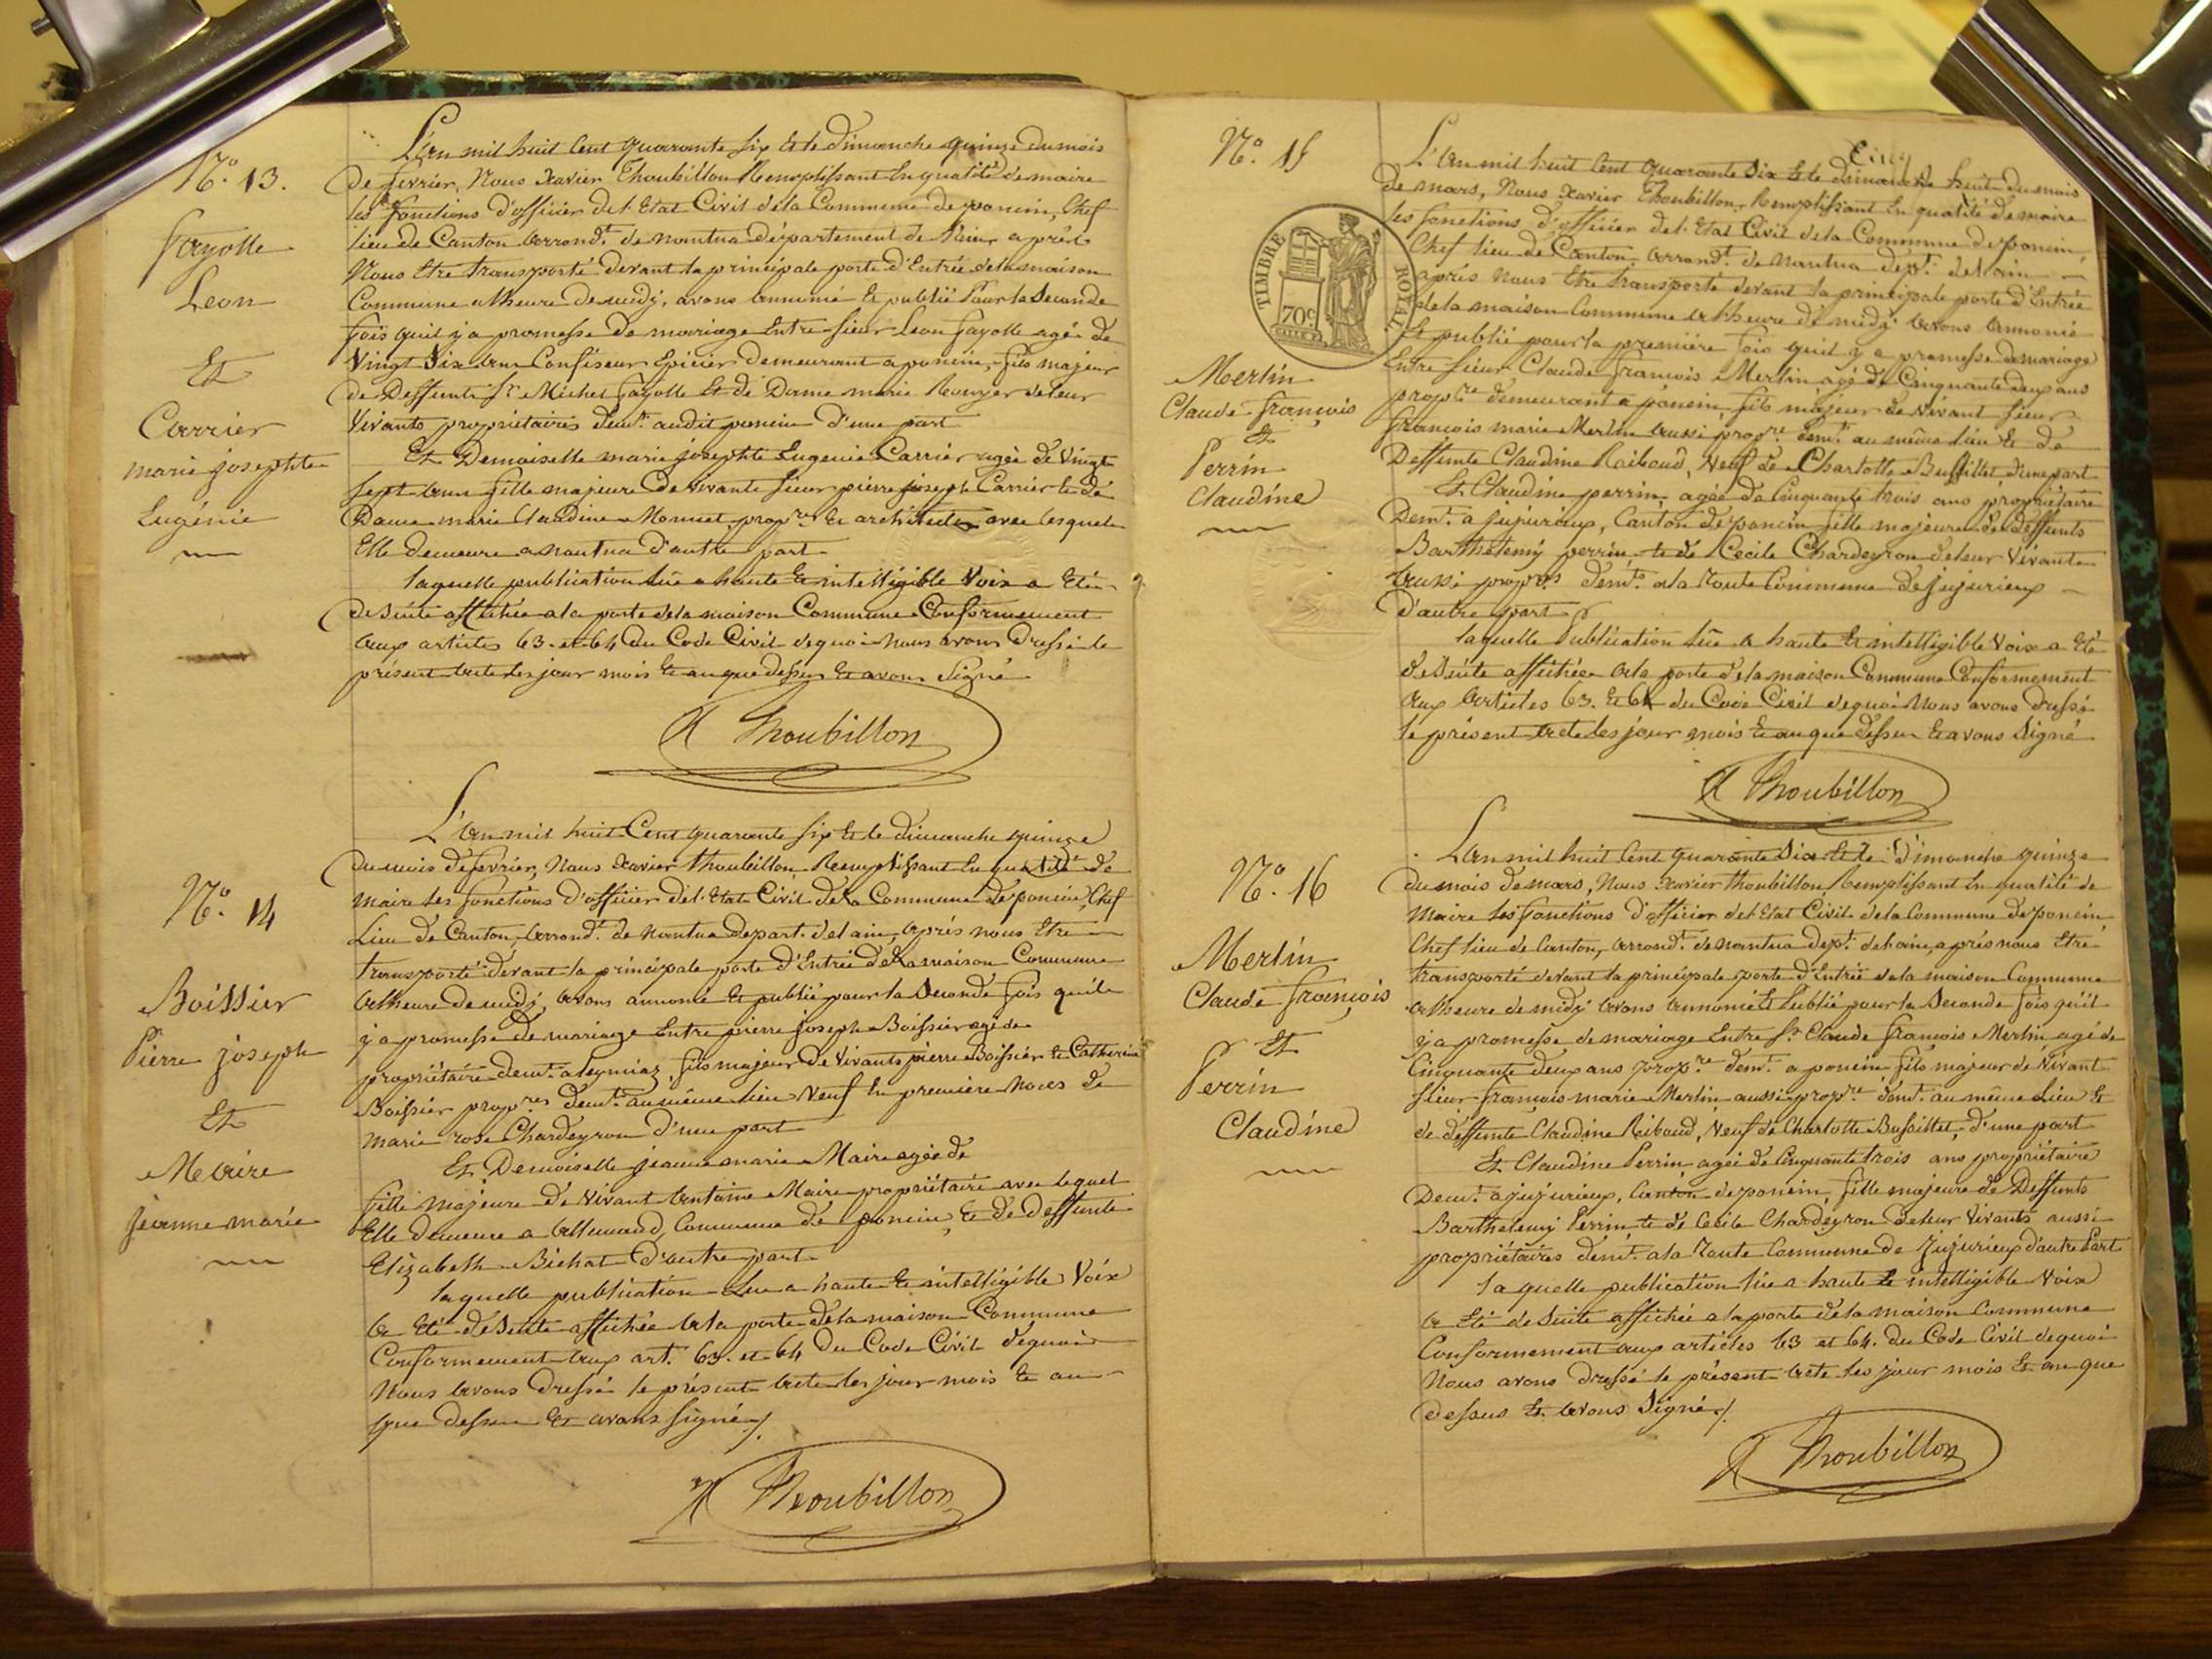 N.o 13.
Fayolle
Leon
Et
Carrier
marie josephte
Eugénie
L'an mil huit Cent quarante six Et le dimanche quinze du mois
de fevrier, Nous Xavier Thoubillon Remplissant En qualité de maire
les fonctions d'officier de l'Etat Civil de la Commune de poncin, Chef
lieu de Canton arrond.t de nantua département de l'ain, après
Nous Etre transporté devant la principale porte d'Entrée de la maison
Commune a l'heure de midy, avons annoncé Et publié Pour la Seconde
fois quil y a promesse de mariage Entre sieur Leon fayolle agé de
Vingt Six ans Confiseur Epicier demeurant a poncin, fils majeur
de Deffunts S.r Michel fayolle Et de Dame marie de leur
Vivants propriétaires dem.t audit poncin d'une part
Et Demoiselle marie josephte Eugenie Carrier agée de Vingt
sept ans fille majeure de vivants sieur pierre joseph Carrier Et de
Dame marie Claudine Monnet, prop.res Et architecte avec lesquels
Elle demeure a nantua d'autre part
laquelle publication lue a haute Et intelligible Voix a Eté
de Suite affichée a la porte de la maison Commune Conformement
aux articles 63. et 64 du Code Civil de quoi Nous avons Dressé le
présent acte les jour mois Et an que dessus Et avons Signé
X Thoubillon
N.o 14
Boissier
Pierre joseph
Et
Maire
jeanne marie
L'an mil huit Cent quarante six Et le dimanche quinze
du mois de fevrier, Nous Xavier Thoubillon Remplissant En qualité de
maire les fonctions d'officier de l'Etat Civil de la Commune de poncin, Chef
Lieu de Canton, arrond.t de Nantua depart. de l'ain, après nous Etre
Transporté devant la principale porte d'Entrée de la maison Commune
a l'heure de midy, avons annoncé Et publié pour la Seconde fois quil
y a promesse de mariage Entre pierre joseph Boissier agé de
propriétaire dem.t a leymiaz, fils majeur de Vivants pierre Boissier Et Catherine
Boissier prop.res dem.t au même lieu Veuf En première Noces de
Marie rose Chardeyron d'une part
Et Demoiselle jeanne marie Maire agée de
fille majeure de Vivant Antoine Maire propriétaire avec lequel
Elle demeure a allemand, Commune de poncin, Et de deffunte
Elizabeth Bichat d'autre part
laquelle publication Lue a haute Et intelligible Voix
a Eté de Suite affichée a la porte de la maison Commune
Conformement aux art. 63. et 64 du Code Civil de quoi
Nous avons Dressé le présent acte les jour mois Et an
que dessus Et avons signé ./.
X Thoubillon
N.o 15
TIMBRE ROYAL
70c
Merlin
Claude françois
Et
Perrin
Claudine
L'an mil huit Cent quarante Six Et le dimanche huit du mois
de mars, Nous Xavier Thoubillon, Remplissant En qualité de maire
les fonctions d'officier de l'Etat Civil de la Commune de poncin,
Chef lieu de Canton, arrond.t de Nantua dép.t de l'ain
après nous Etre transporté devant la principale porte d'Entrée
de la maison Commune a l'heure de midy avons annoncé
Et publié pour la première fois quil y a promesse de mariage
Entre sieur Claude françois Merlin agé de Cinquante deux ans
prop.re demeurant a poncin, fils majeur de vivant sieur
françois marie Merlin aussi prop.re dem.t au même lieu Et de
Deffunte Claudine Raibaud, Veuf de Charlotte Buffillet, d'une part
Et Claudine perrin, agée de Cinquante trois ans propriétaire
Dem.t a jujurieux, Canton de poncin fille majeure de deffunts
Barthelemy perrin Et de Cecile Chardeyron de leur Vivants
aussi prop.res dem.ts a la Route Commune de jujurieux
d'autre part
laquelle publication lue a haute Et intelligible Voix a Eté
de Suite affichée a la porte de la maison Commune Conformement
aux articles 63. Et 64 du Code Civil de quoi Nous avons dressé
le présent acte les jour mois Et an que dessus Et avons Signé
X Thoubillon
N.o 16
Merlin
Claude françois
Et
Perrin
Claudine
L'an mil huit Cent quarante Six Et le Dimanche quinze
du mois de mars, Nous Xavier Thoubillon Remplissant En qualité de
Maire les fonctions d'officier de l'Etat Civil de la Commune de poncin
Chef lieu de Canton, arrond.t de nantua dép.t de l'ain, après nous Etre
transporté devant la principale porte d'Entrée de la maison Commune
a l'heure de midy avons annoncé Et Publié pour la Seconde fois qu'il
y a promesse de mariage Entre S.r Claude françois Merlin agé de
Cinquante deux ans prop.re dem.t a poncin fils majeur de Vivant
sieur françois marie Merlin aussi prop.re dem.t au même Lieu Et
de deffunte Claudine Raibaud, Veuf de Charlotte Bufaillet, d'une part
Et Claudine Perrin, agée de Cinquante trois ans propriétaire
Dem.t a jujurieux, Canton de poncin, fille majeure de Deffunts
Barthelemy Perrin Et de Cecile Chardeyron de leur Vivants aussi
propriétaires dem.t a la Route Commune de Jujurieux d'autre Part
laquelle publication lue a haute Et intelligible Voix
a Eté de Suite affichée a la porte de la maison Commune
Conformement aux articles 63 et 64. du Code Civil de quoi
Nous avons dressé le présent acte les jour mois Et an que
dessus Et avons Signé ./.
X Thoubillon